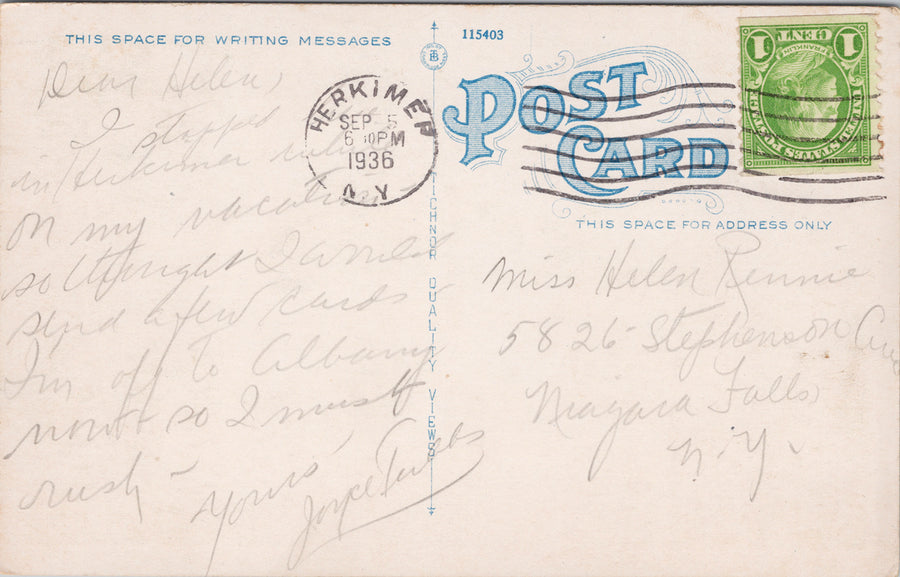 THIS SPACE FOR WRITING MESSAGES
Dear Helen,
I stopped
in Herkimer
on my vacation
so thought I would
send a few cards
I'm off to Albany
now so I must
rush -
Yours,
Joyce
TICHNOR QUALITY VIEWS
115403
POST
CARD
HERKIMER
SEP 5
6 PM
1936
N.Y.
1 CENT 1
FRANKLIN
UNITED STATES POSTAGE
THIS SPACE FOR ADDRESS ONLY
Miss Helen Rennie
5826 Stephenson Ave
Niagara Falls
N.Y.